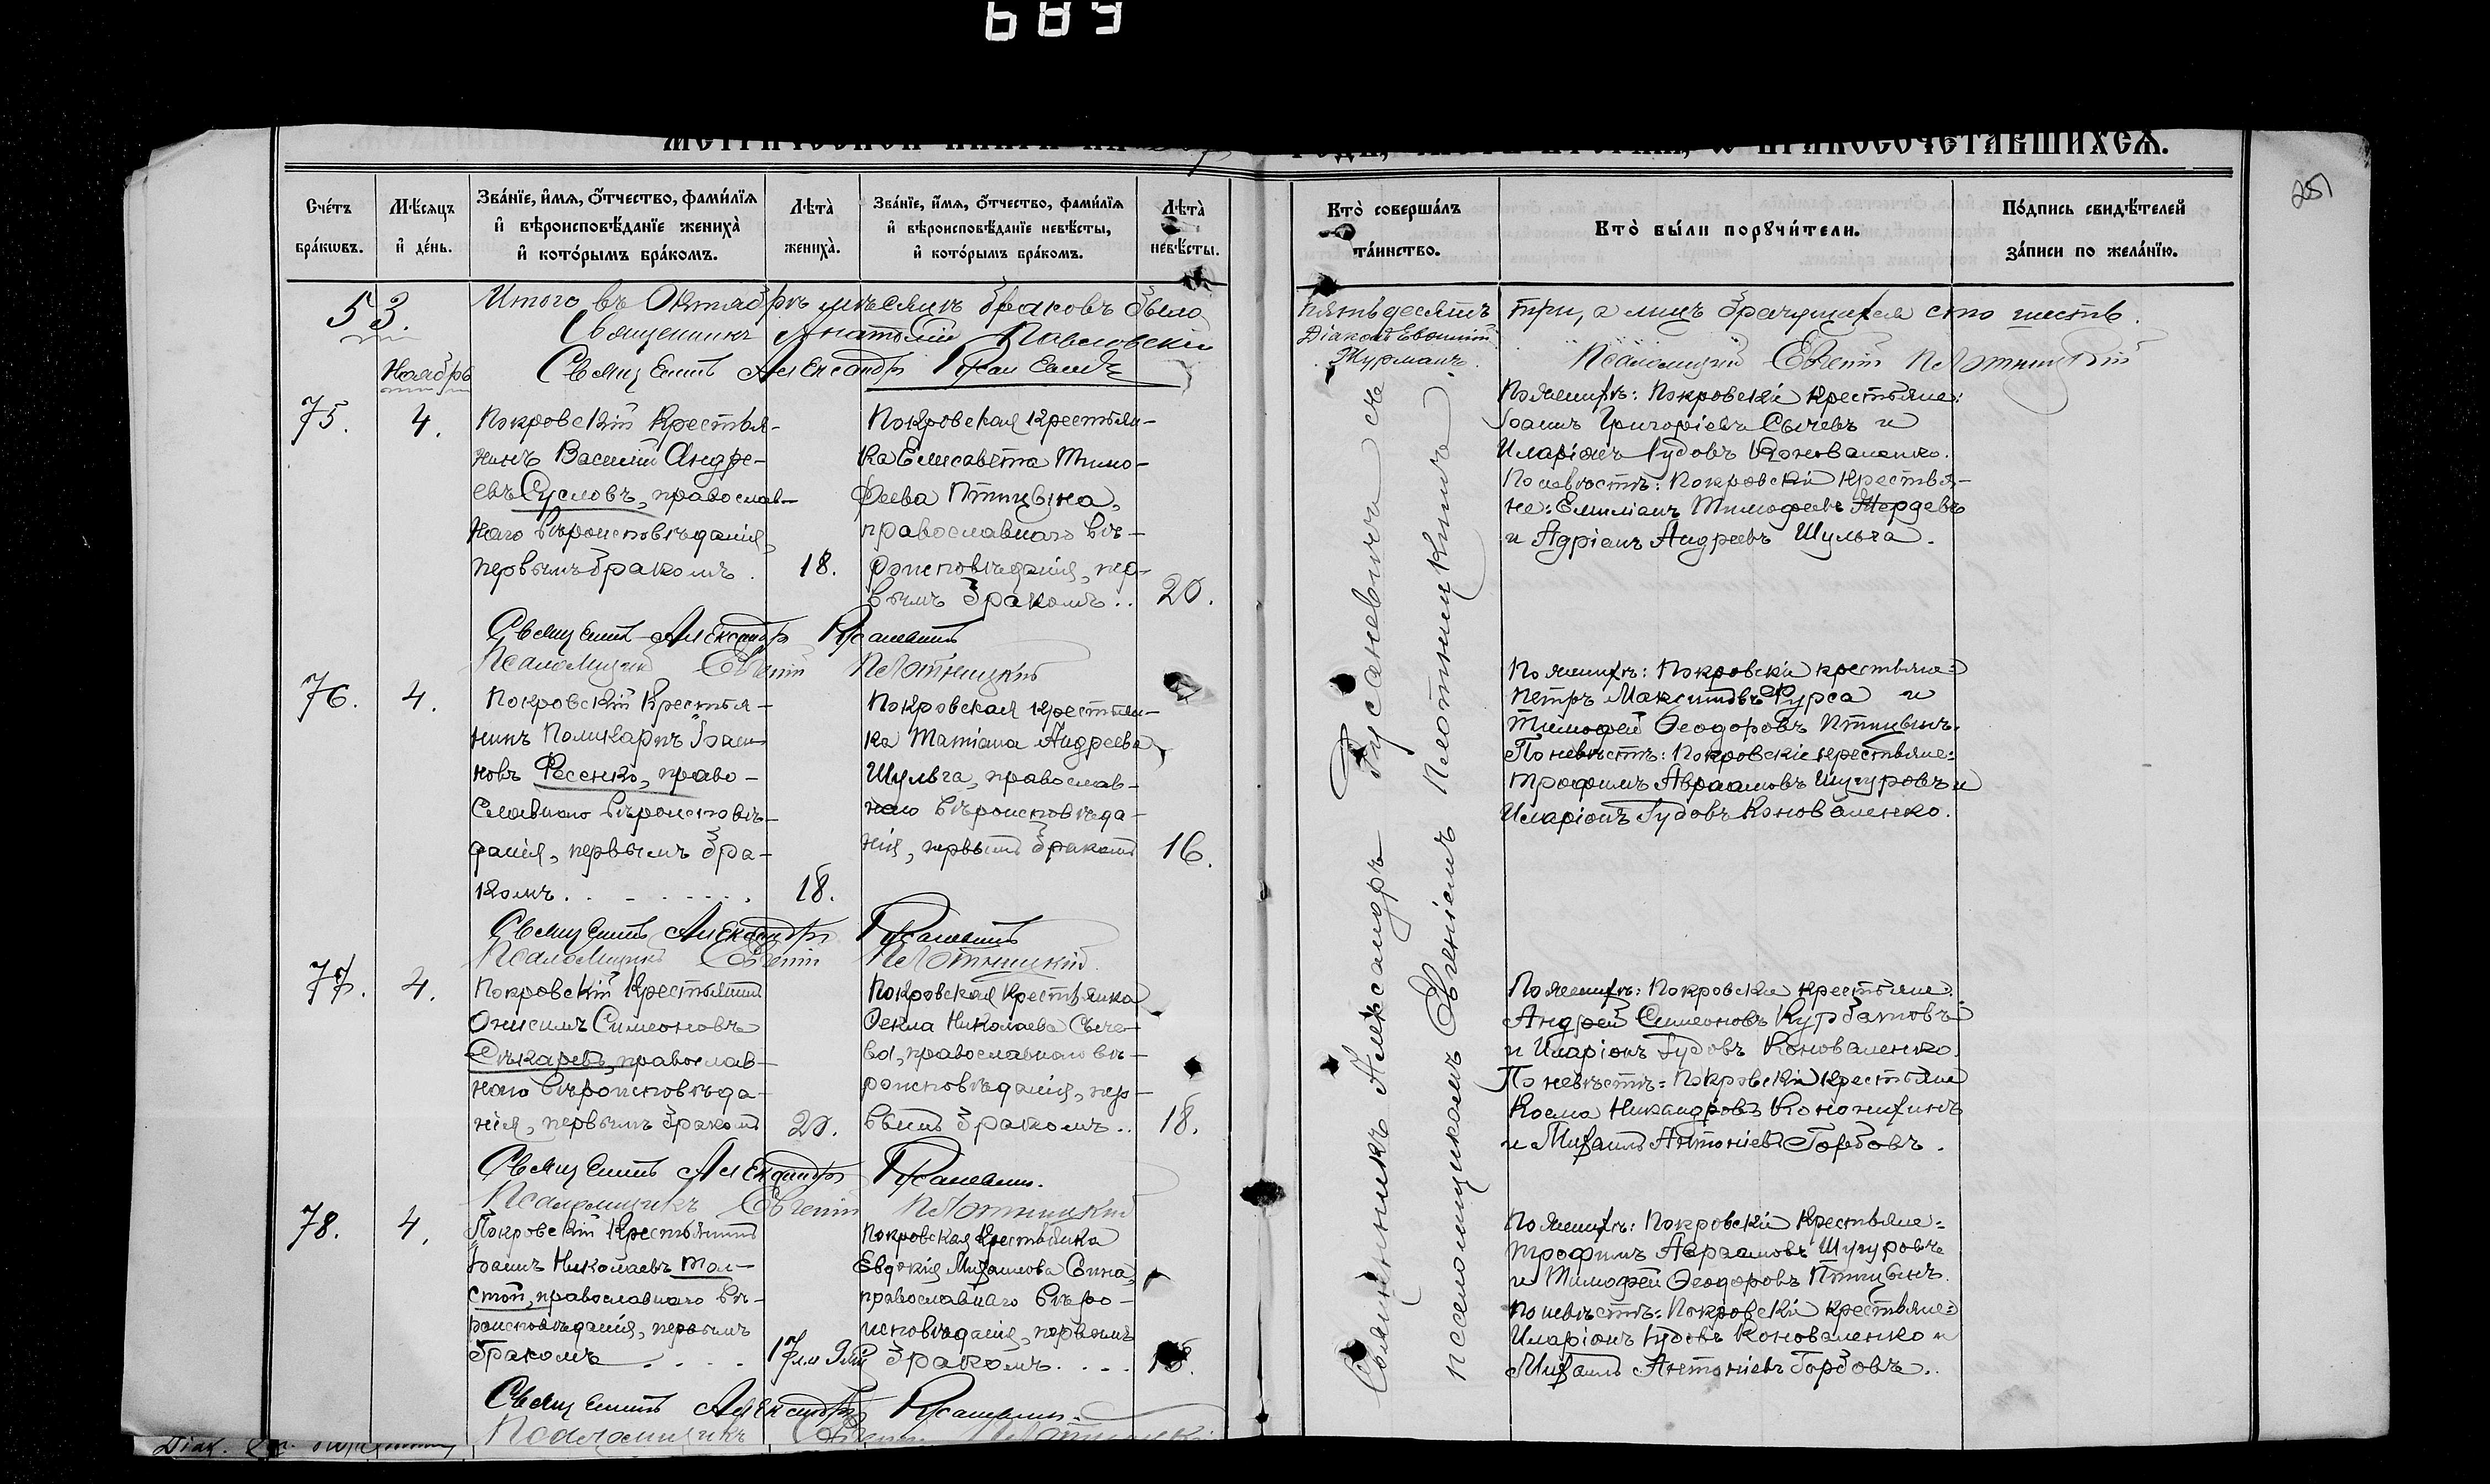 689
251
Счетъ браковъ.
Мѣсяцъ и день.
Званіе, имя, отчество, фамилія и вѣроисповѣданіе жениха и которымъ бракомъ.
Лѣта жениха.
Званіе, имя, отчество, фамилія и вѣроисповѣданіе невѣсты, и которымъ бракомъ.
Лѣта невѣсты.
Кто совершалъ таинство.
Кто были поручители.
Подпись свидѣтелей записи по желанію.
53. Итого въ Октябрѣ мѣсяцѣ браковъ было пятьдесятъ три, а лицъ брачущихся сто шесть.
Священникъ Анатолій Павловскій
Діаконъ Евѳимій Журманъ.
Священникъ Александръ Русаневичъ
Псаломщикъ Евгеній Плотницкій
Ноябрь
75. 4.
Покровскій Крестья-
нинъ Василій Андре-
евъ Сусловъ, православ-
наго вѣроисповѣданія,
первымъ бракомъ. 18.
Покровская крестьян-
ка Елисавета Тимо-
феева Птицына,
православнаго вѣ-
роисповѣданія, пер-
вымъ бракомъ.. 20.
По женихѣ: Покровскіе крестьяне:
Іоаннъ Григоріевъ Сычевъ и
Иларіонъ Іудовъ Коноваленко.
По невѣстѣ: Покровскіе крестья-
не: Емиліанъ Тимофеевъ Жердевъ
и Адріанъ Андреевъ Шульга.
Священникъ Александръ Русаневичъ
Псаломщикъ Евгеній Плотницкій
76. 4.
Покровскій Крестья-
нинъ Поликарпъ Іоан-
новъ Фесенко, право-
славнаго вѣроисповѣ-
данія, первымъ бра-
комъ. 18.
Покровская крестьян-
ка Татіана Андреева
Шульга, православ-
наго вѣроисповѣда-
нія, первымъ бракомъ 16.
По женихѣ: Покровскіе крестьяне:
Петръ Максимовъ Фурса и
Тимофей Ѳеодоровъ Птицынъ.
По невѣстѣ: Покровскіе крестьяне:
Трофимъ Авраамовъ Шугуровъ и
Иларіонъ Іудовъ Коноваленко.
Священникъ Александръ Русаневичъ
Псаломщикъ Евгеній Плотницкій.
77. 4.
Покровскій Крестьянинъ
Онисимъ Симеоновъ
Сѣкаревъ, православ-
наго вѣроисповѣда-
нія, первымъ бракомъ 20.
Покровская Крестьянка
Ѳекла Николаева Сыче-
ва, православнаго вѣ-
роисповѣданія, пер-
вымъ бракомъ.. 18.
По женихѣ: Покровскіе крестьяне:
Андрей Симеоновъ Курбатовъ
и Иларіонъ Іудовъ Коноваленко.
По невѣстѣ: Покровскіе крестьяне
Косма Никандровъ Кононихинъ
и Михаилъ Антоніевъ Горбовъ.
Священникъ Александръ Русаневичъ.
Псаломщикъ Евгеній Плотницкій
78. 4.
Покровскій Крестьянинъ
Іоаннъ Николаевъ Тол-
стой, православнаго вѣ-
роисповѣданія, первымъ
бракомъ. 17 л. и 9 м.
Покровская Крестьянка
Евдокія Михаилова Сина,
православнаго вѣро-
исповѣданія, первымъ
бракомъ. 18.
По женихѣ: Покровскіе Крестьяне:
Трофимъ Авраамовъ Шугуровъ
и Тимофей Ѳеодоровъ Птицынъ.
По невѣстѣ: Покровскіе крестьяне:
Иларіонъ Іудовъ Коноваленко и
Михаилъ Антоніевъ Горбовъ..
Священникъ Александръ Русаневичъ.
Псаломщикъ Евгеній Плотницкій
Священникъ Александръ Русаневичъ съ
псаломщикомъ Евгеніемъ Плотницкимъ.